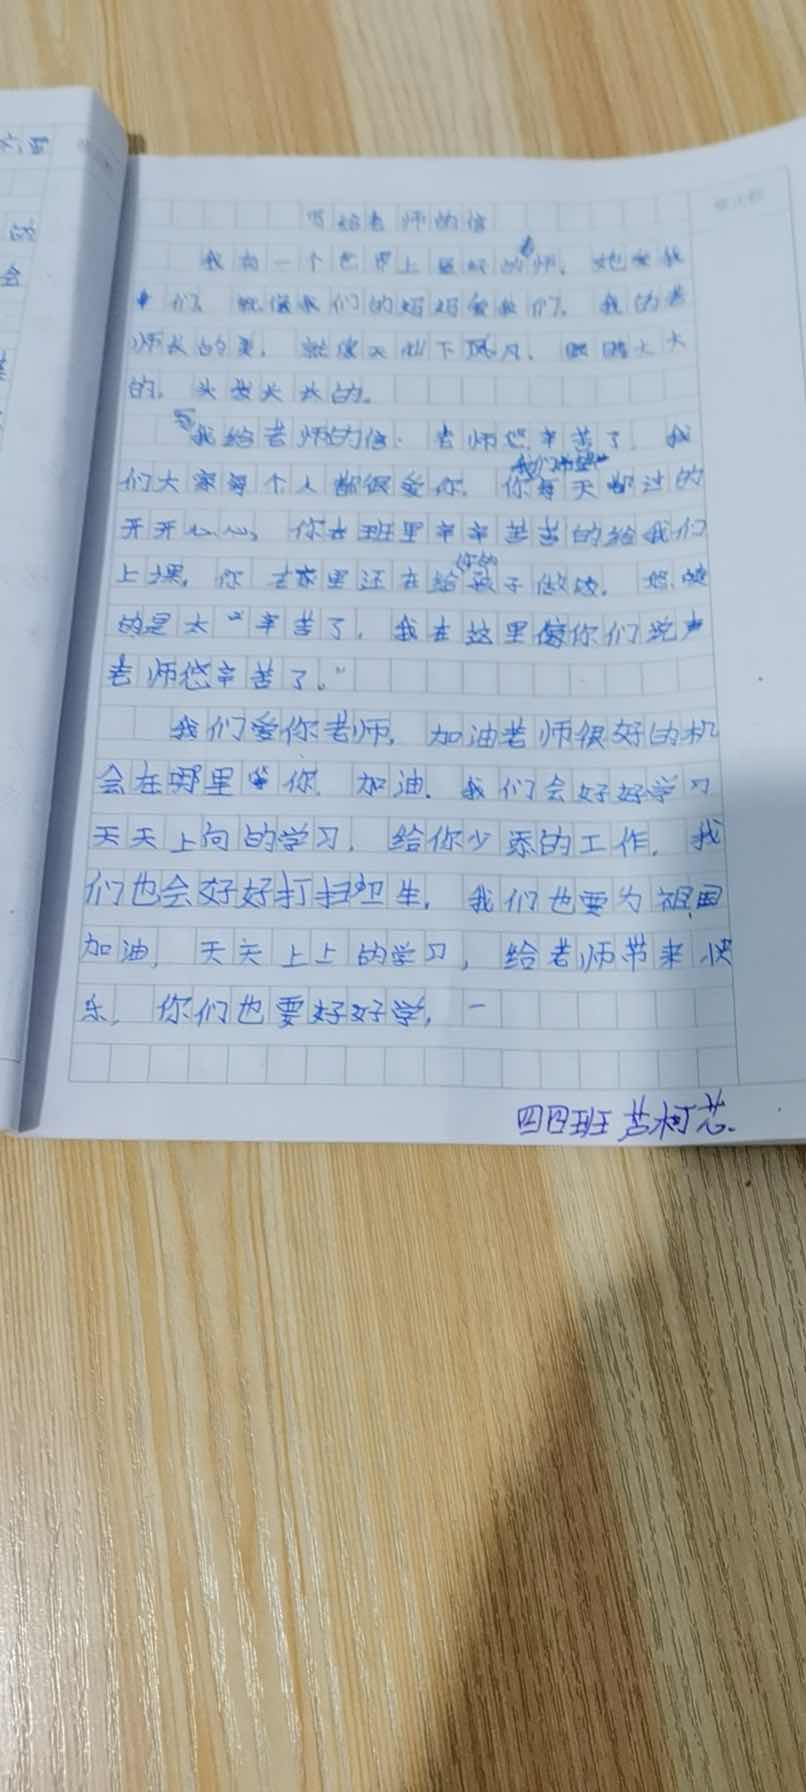 写给老师的信
我有一个世界上最好的老师，她爱我
们，就像我们的妈妈爱我们。我的老
师长的美，就像天仙下凡，眼睛大大
的，头发长长的。
写我给老师的信：老师您辛苦了，我
们大家每个人都很爱你，我们希望你每天都过的
开开心心，你在班里辛辛苦苦的给我们
上课，你去家里还在给你的孩子做饭，
的是太“辛苦了，我在这里像你们说声
老师您辛苦了。”
我们爱你老师，加油老师很好的机
会在哪里等你，加油，我们会好好学习
天天上向的学习，给你少添的工作，我
们也会好好打扫卫生，我们也要为祖国
加油，天天上上的学习，给老师带来快
乐，你们也要好好学，一
四四班 芦柯芯.
六五
的
会